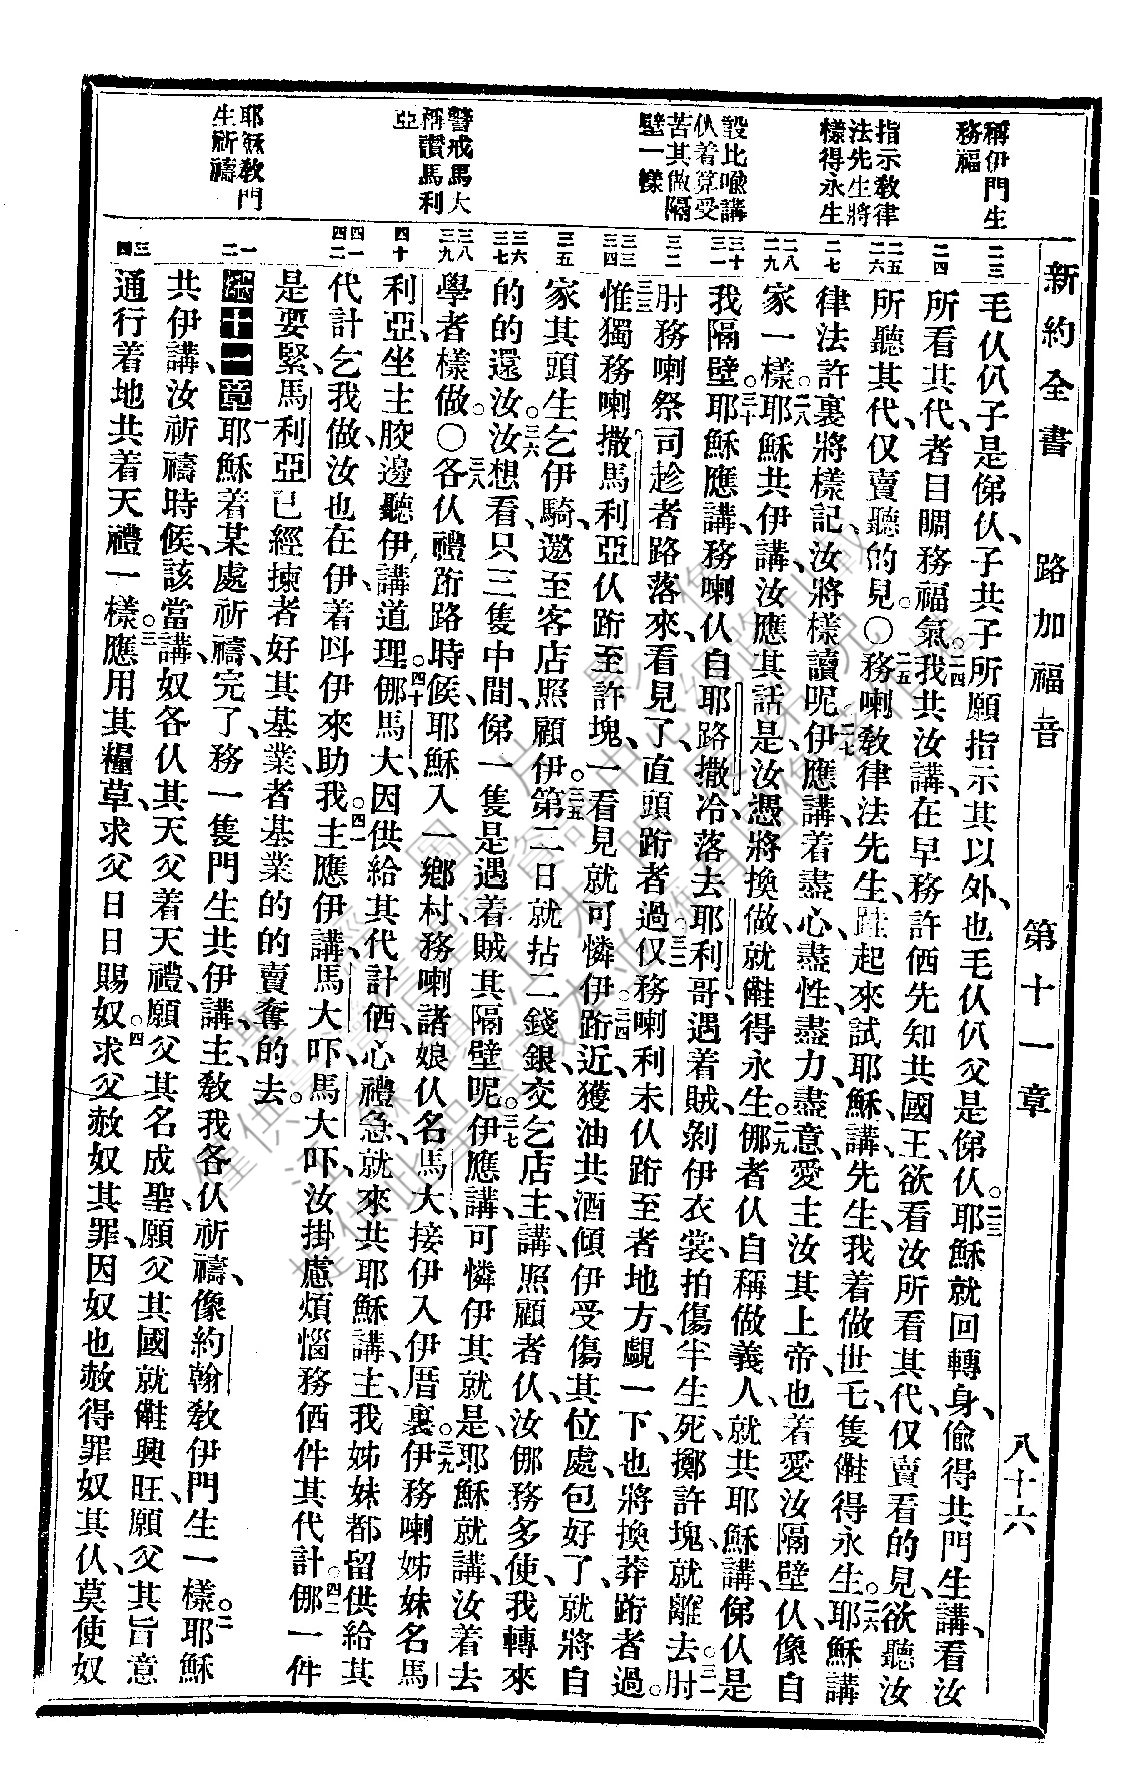 新約全書　路加福音　第十一章　八十六
稱伊門生
務福
指示教律
法先生將
樣得永生
設比喻講
仈着算受
苦其做隔
壁一樣
警戒馬大
稱讚馬利
亞
耶穌教門
生祈禱
二三
二四
二五
二六
二七
二八
二九
三十
三一
三二
三三
三四
三五
三六
三七
三八
三九
四十
四一
四二
一
二
三
四
毛仈仍子是俤仈、子共子所願指示其以外、也毛仈仍父是俤仈。二三耶穌就回轉身、偷得共門生講、看汝
所看其代、者目睭務福氣。二四我共汝講、在早務許価先知共國王、欲看汝所看其代、仅賣看的見、欲聽汝
所聽其代、仅賣聽的見。〇二五務喇教律法先生、跬起來試耶穌、講、先生、我着做世乇、隻會得永生。二六耶穌講
律法許裏將樣記、汝將樣讀呢。二七伊應講、着盡心、盡性、盡力、盡意、愛主汝其上帝、也着愛汝隔壁仈、像自
家一樣。二八耶穌共伊講、汝應其話是、汝憑將換做、就會得永生。二九挪者仈自稱做義人、就共耶穌講、俤仈是
我隔壁。三十耶穌應講、務喇仈自耶路撒冷落去耶利哥、遇着賊、剝伊衣裳、拍傷半生死、擲許塊、就離去。三一肘
肘務喇祭司趁者路落來、看見了、直頭跨者過。三二仅務喇利未仈跨至者地方、覷一下、也將換莽跨者過。
三三惟獨務喇撒馬利亞仈、跨至許塊、一看見就可憐伊。三四跨近、獲油共酒傾伊受傷其位處、包好了、就將自
家其頭生乞伊騎、邀至客店照顧伊。三五第二日就拈二錢銀、交乞店主、講、照顧者仈、汝挪務多使、我轉來
的的還汝。三六汝想看、只三隻中間、俤一隻是遇着賊其隔壁呢。三七伊應講、可憐伊其就是。耶穌就講、汝着去
學者樣做。〇三八各仈禮跨路時候、耶穌入一鄉村、務喇諸娘仈名馬大、接伊入伊厝裏。三九伊務喇姊妹名馬
利亞、坐主膠邊、聽伊講道理。四十挪馬大、因供給其代計価心禮急、就來共耶穌講、主、我姊妹都留供給其
代計乞我做、汝也在伊、着呌伊來助我。四一主應伊講、馬大吓、馬大吓、汝掛慮煩惱務価件其代計。四二挪一件
是要緊、馬利亞已經揀者好其基業、者基業的的賣奪的去。
第十一章一耶穌着某處祈禱、完了、務一隻門生共伊講、主、教我各仈祈禱、像約翰教伊門生一樣。二耶穌
共伊講、汝祈禱時候、該當講、奴各仈其天父着天禮、願父其名成聖、願父其國就會興旺、願父其旨意
通行着地、共着天禮一樣。三應用其糧草、求父日日賜奴。四求父赦奴其罪、因奴也赦得罪奴其仈、莫使奴